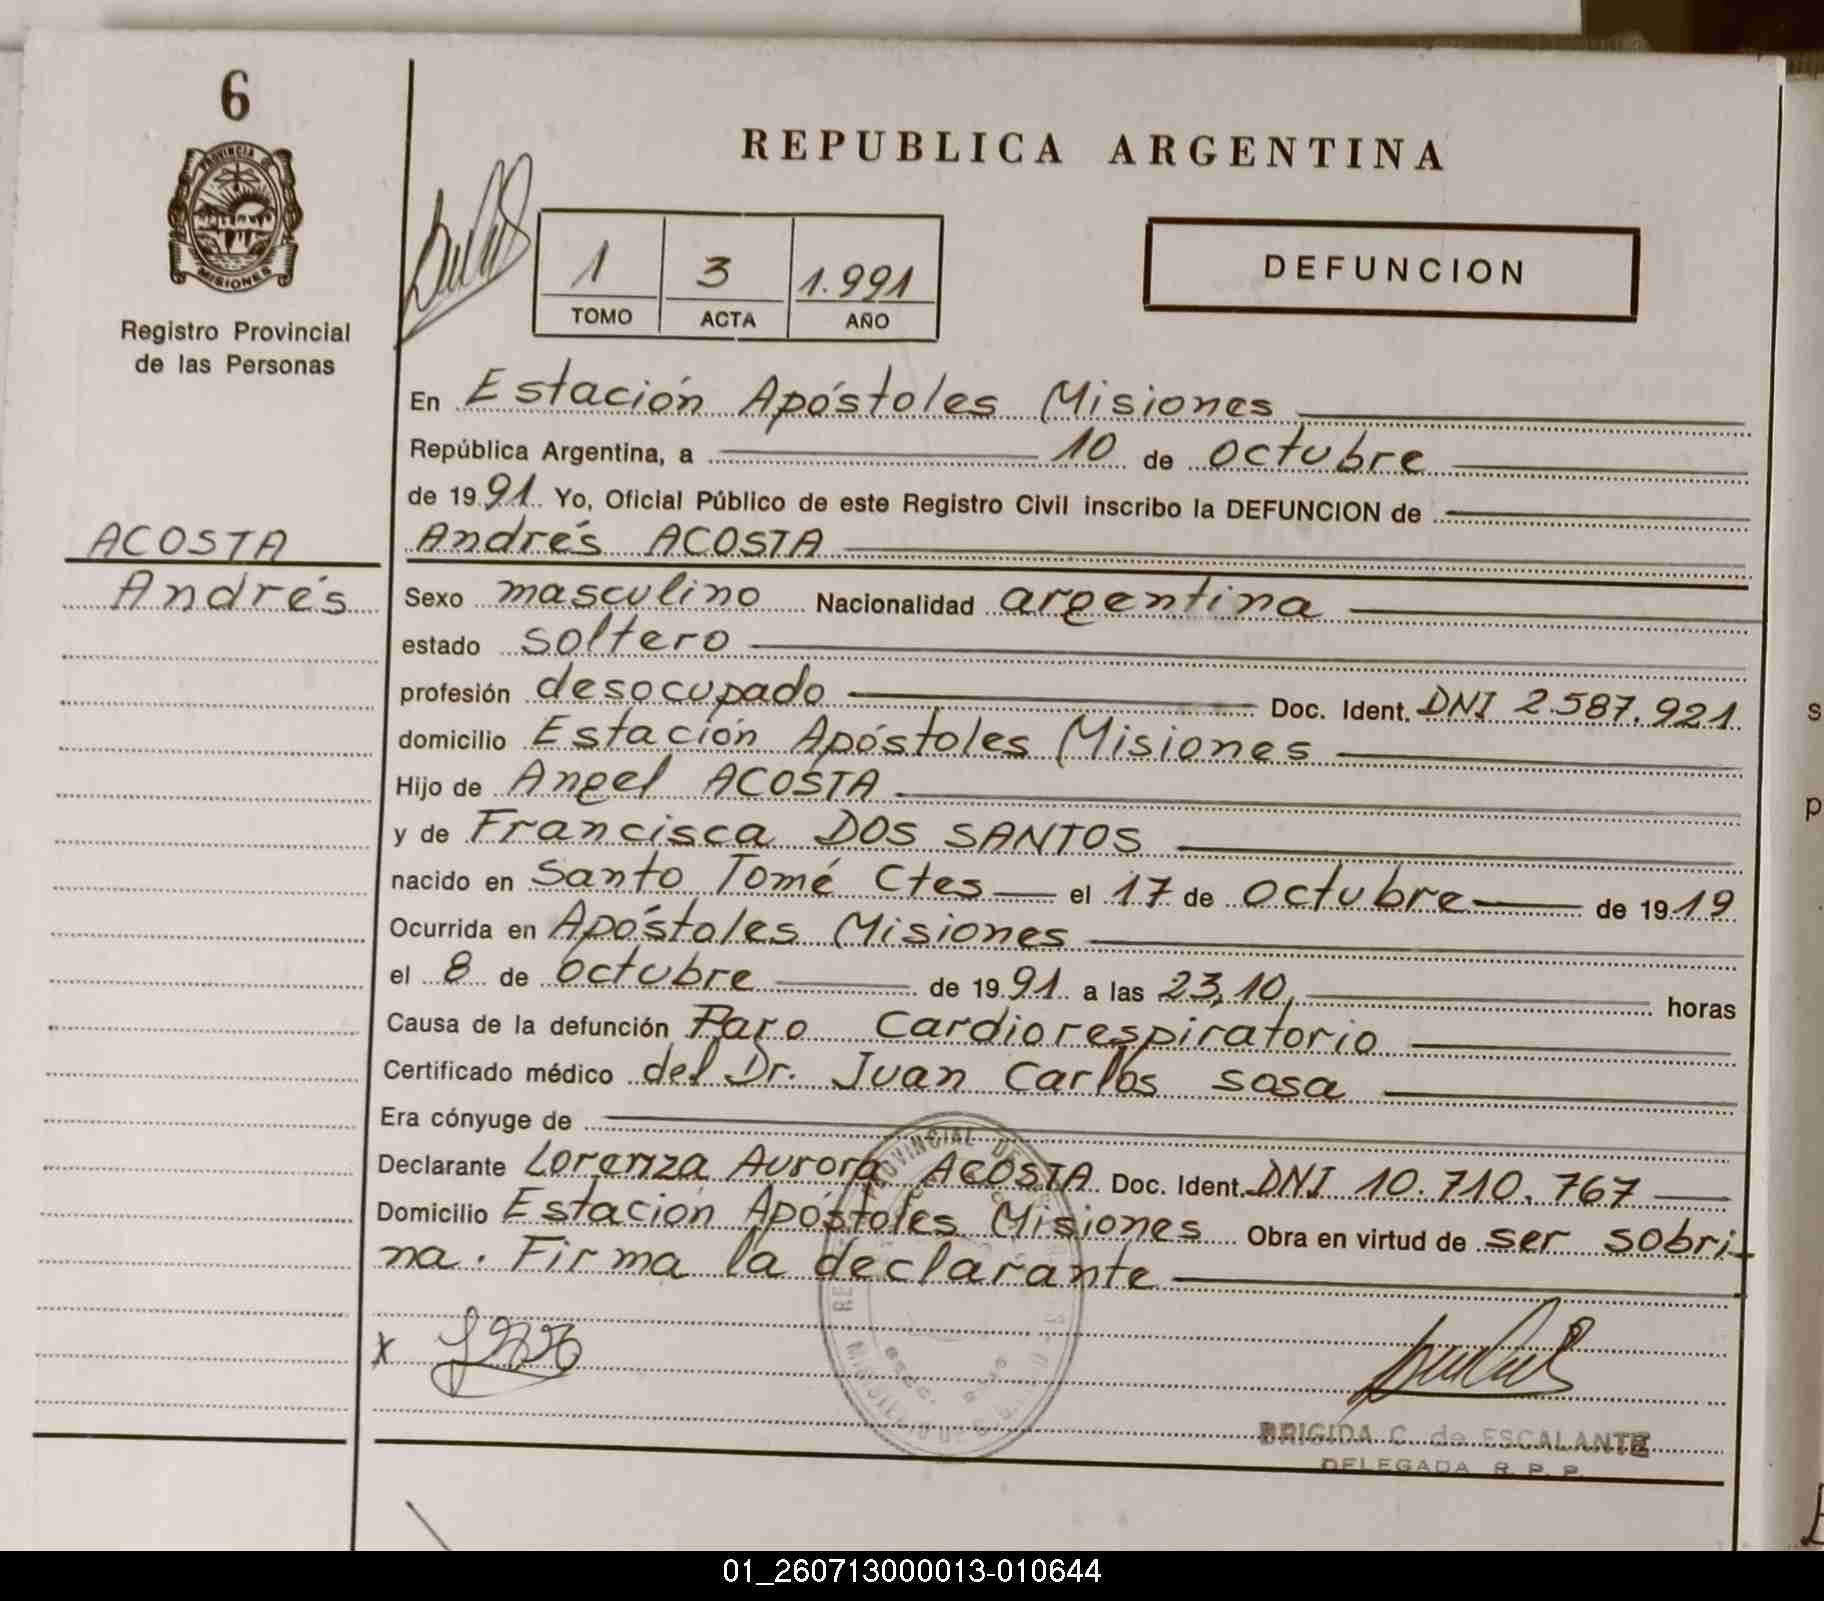 6
PROVINCIA DE
MISIONES
Registro Provincial
de las Personas
ACOSTA
Andrés
REPUBLICA ARGENTINA
1 3 1.991
TOMO ACTA AÑO
DEFUNCION
En Estación Apóstoles Misiones
República Argentina, a 10 de octubre
de 1991 Yo, Oficial Público de este Registro Civil inscribo la DEFUNCION de
Andrés ACOSTA
Sexo masculino Nacionalidad argentina
estado soltero
profesión desocupado Doc. Ident. DNI 2.587.921
domicilio Estación Apóstoles Misiones
Hijo de Angel ACOSTA
y de Francisca DOS SANTOS
nacido en Santo Tomé Ctes el 17 de octubre de 1919
Ocurrida en Apóstoles Misiones
el 8 de octubre de 1991 a las 23,10, horas
Causa de la defunción Paro Cardiorespiratorio
Certificado médico del Dr. Juan Carlos sosa
Era cónyuge de
Declarante Lorenza Aurora ACOSTA Doc. Ident. DNI 10.710.767
Domicilio Estación Apóstoles Misiones Obra en virtud de ser sobri-
na. Firma la declarante
x
BRIGIDA C. de ESCALANTE
DELEGADA R. P. P.
01_260713000013-010644